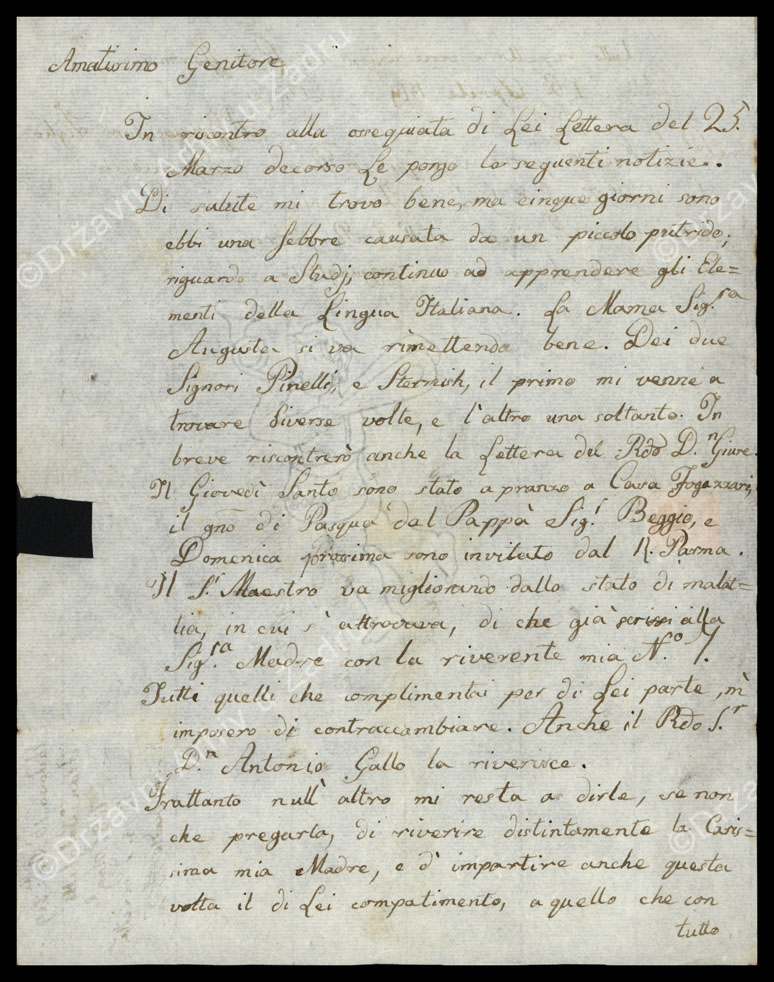 Amatissimo Genitore
In riscontro alla ossequiata di Lei Lettera del 25.
Marzo decorso Le porgo le seguenti notizie.
Di salute mi trovo bene, ma cinque giorni sono
ebbi una febbre causata da un piccolo putrido;
riguardo a Studj, continuo ad apprendere gli Ele=
menti della Lingua Italiana. La Mama Sig.ra
Augusta si va rimettendo bene. Dei due
Signori Pinelli, e Stermich, il primo mi venne a
trovare diverse volte, e l'altro una soltanto. In
breve riscontrerò anche la Lettera del Rdo D.n Giure.
Il Giovedì Santo sono stato a pranzo a Casa Fogazzari,
il gno di Pasqua dal Pappà Sig.r Beggio, e
Domenica prossima sono invitato dal R. Parma.
Il S.r Maestro va migliorando dallo stato di malat=
tia, in cui s'attrovava, di che già scrissi alla
Sig.ra Madre con la riverente mia N.o 7.
Tutti quelli che complimentai per di Lei parte, m'
imposero di contraccambiare. Anche il Rdo S.r
D.n Antonio Gallo la riverisce.
Trattanto null'altro mi resta a dirle, se non
che pregarla, di riverire distintamente la Caris=
sima mia Madre, e d'impartire anche questa
volta il di Lei compatimento, a quello che con
tutto
©Državni Arhiv u Zadru